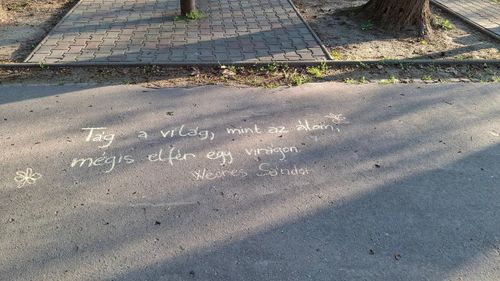 Tág a világ, mint az álom,
mégis elfér egy virágon.
Weöres Sándor